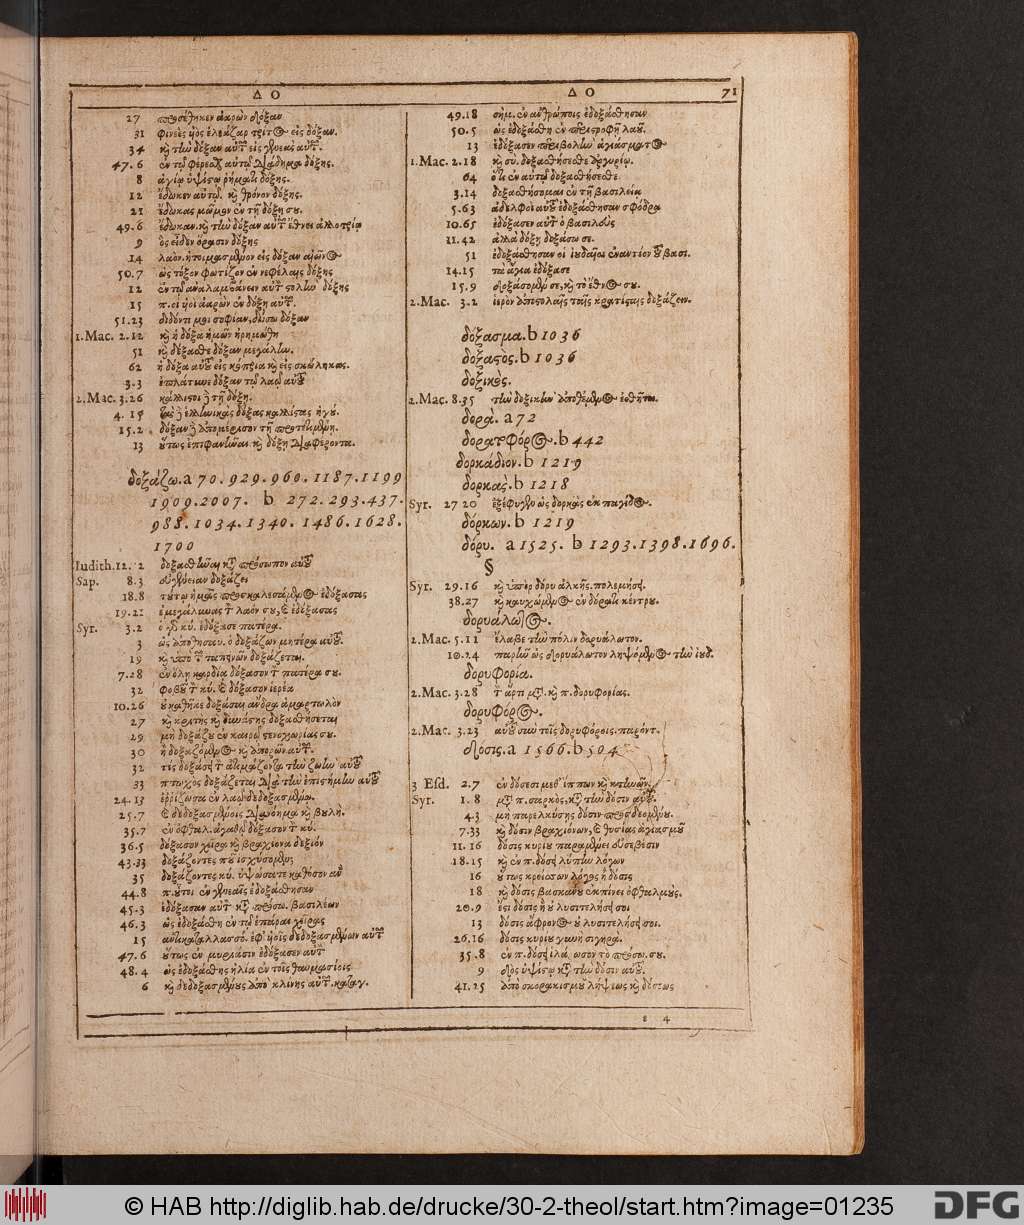 Δ Ο
Δ Ο 71
27 προσέθηκεν ἀαρὼν δόξαν
31 φινεὲς υἱὸς ἐλεάζαρ τρίτος εἰς δόξαν.
34 κỳ τὴν δόξαν αὐτοῦ εἰς γενεὰς αὐτοῦ.
47.6 ἐν τῷ φέρεσθαι αὐτῷ διάδημα δόξης.
8 ἁγίῳ ὑψίστῳ ῥήματι δόξης.
12 ἔδωκεν αὐτῷ. καὶ θρόνον δόξης.
21 ἔδωκας μῶμον ἐν τῇ δόξῃ σου.
49.6 ἔδωκαν. καὶ τὴν δόξαν αὐτῶν ἔθνει ἀλλοτρίῳ
9 ὃς εἶδεν ὅρασιν δόξης
14 λαὸν. ἡτοιμασμένον εἰς δόξαν αἰῶνος
50.7 ὡς τόξον φωτίζον ἐν νεφέλαις δόξης
12 ἐν τῷ ἀναλαμβάνειν αὐτὸν στολὴν δόξης
15 π. οἱ υἱοὶ ἀαρὼν ἐν δόξῃ αὐτῶν.
51.23 διδόντι μοι σοφίαν, δώσω δόξαν
1.Mac. 2.12 καὶ ἡ δόξα ἡμῶν ἠρημώθη
51 καὶ δέξασθε δόξαν μεγάλην.
62 ἡ δόξα αὐτοῦ εἰς κόπρια καὶ εἰς σκώληκας.
3.3 ἐπλάτυνε δόξαν τῷ λαῷ αὐτοῦ
2.Mac. 3.26 κάλλιστοι δὲ τῇ δόξῃ.
4.15 τὰς δὲ ἑλληνικὰς δόξας καλλίστας ἡγού.
15.2 δόξαν δὲ ἀπομέρισον τῇ προτετιμημένῃ.
13 οὕτως ἐπιφανῆναι καὶ δόξῃ διαφέροντα.
δοξάζω. a 70. 929. 960. 1187. 1199
1909. 2007. b 272. 293. 437.
988. 1034. 1340. 1486. 1628.
1700
Iudith. 12. 2 δοξασθῆναι κατὰ πρόσωπον αὐτοῦ
Sap. 8.3 εὐγένειαν δοξάζει
18.8 τούτῳ ἡμᾶς προσκαλεσάμενος ἐδόξασας
19.21 ἐμεγάλυνας τὸν λαόν σου, καὶ ἐδόξασας
Syr. 3.2 ὁ γὰρ κύ. ἐδόξασε πατέρα.
3 ὡς ἀποθησαυ. ὁ δοξάζων μητέρα αὐτοῦ.
19 καὶ ὑπὸ τῶν ταπεινῶν δοξάζεται.
7.28 ἐν ὅλῃ καρδίᾳ δόξασον τὸν πατέρα σου.
32 φοβοῦ τὸν κύ. καὶ δόξασον ἱερέα
10.26 οὐ καθῆκε δοξάσαι ἄνδρα ἁμαρτωλὸν
27 καὶ κριτὴς καὶ δυνάστης δοξασθήσεται
29 μὴ δοξάζου ἐν καιρῷ στενοχωρίας σου.
30 ἢ δοξαζόμενος καὶ ἀπορῶν αὐτῶν.
32 τίς δοξάσει τὸν ἀτιμάζοντα τὴν ζωὴν αὐτοῦ
33 πτωχὸς δοξάζεται διὰ τὴν ἐπιστήμην αὐτοῦ
24.13 ἐῤῥίζωσα ἐν λαῷ δεδοξασμένῳ.
25.7 καὶ δεδοξασμένοις διανόημα καὶ βουλὴ.
35.7 ἐν ὀφθαλ. ἀγαθῷ δόξασον τὸν κύ.
36.5 δόξασον χεῖρα καὶ βραχίονα δεξιόν
43.33 δοξάζοντες ποῦ ἰσχύσομεν;
35 δοξάζοντες κύ. ὑψώσατε καθόσον ἂν
44.8 π. οὗτοι ἐν γενεαῖς ἐδοξάσθησαν
45.3 ἐδόξασεν αὐτὸν κατὰ πρόσω. βασιλέων
46.3 ὡς ἐδοξάσθη ἐν τῷ ἐπάραι χεῖρας
15 ἀντικαταλλασσό. ἐφ' υἱοῖς δεδοξασμένων αὐτῶν
47.6 οὕτως ἐν μυριάσιν ἐδόξασεν αὐτὸν
48.4 ὡς ἐδοξάσθης ἠλία ἐν τοῖς θαυμασίοις
6 καὶ δεδοξασμένους ἀπὸ κλίνης αὐτῶν. καταγ.
49.18 σὴμ. ἐν ἀνθρώποις ἐδοξάσθησαν
50.5 ὡς ἐδοξάσθη ἐν περιστροφῇ λαοῦ.
13 ἐδόξασεν περιβολὴν ἁγιάσματος
1.Mac. 2.18 καὶ συ. δοξασθήσεσθε ἀργυρίῳ.
64 ὅτι ἐν αὐτῷ δοξασθήσεσθε
3.14 δοξασθήσομαι ἐν τῇ βασιλείᾳ
5.63 ἀδελφοὶ αὐτοῦ ἐδοξάσθησαν σφόδρα
10.65 ἐδόξασεν αὐτὸν ὁ βασιλεὺς
11.42 ἀλλὰ δόξῃ δοξάσω σε.
51 ἐδοξάσθησαν οἱ ἰουδαῖοι ἐναντίον τοῦ βασι.
14.15 τὰ ἅγια ἐδόξασε
15.9 δοξάσομέν σε, καὶ τὸ ἔθνος σου.
2.Mac. 3.2 ἱερὸν ἀποστολαῖς ταῖς κρατίσταις δοξάζειν.
δόξασμα. b 1036
δοξαστός. b 1036
δοξικὸς.
2.Mac. 8.35 τὴν δοξικὴν ἀποθέμενος ἐσθῆτα.
δορὰ. a 72
δορατοφόρος. b 442
δορκάδιον. b 1219
δορκὰς. b 1218
Syr. 27 20 ἐξέφυγεν ὡς δορκὰς ἐκ παγίδος.
δόρκων. b 1219
δόρυ. a 1525. b 1293. 1398. 1696.
§
Syr. 29.16 καὶ ὑπὲρ δόρυ ἀλκῆς. πολεμήσει.
38.27 καὶ καυχώμενος ἐν δόρατι κέντρου.
δορυάλωτος.
2.Mac. 5.11 ἔλαβε τὴν πόλιν δορυάλωτον.
10.24 παρῆν ὡς δορυάλωτον ληψόμενος τὴν ἰουδ.
δορυφορία.
2.Mac. 3.28 τὸν ἄρτι μετὰ. καὶ π. δορυφορίας.
δορυφόρος.
2.Mac. 3.23 αὐτοῦ σὺν τοῖς δορυφόροις. παρόντ.
δόσις. a 1566. b 504
3 Esd. 2.7 ἐν δόσεσι μεθ' ἵππων καὶ κτηνῶν.
Syr. 1.8 μετὰ π. σαρκὸς, κατὰ τὴν δόσιν αὐτοῦ.
4.3 μὴ παρελκύσῃς δόσιν προσδεομένου.
7.33 καὶ δόσιν βραχιόνων, καὶ θυσίας ἁγιασμοῦ
11.16 δόσις κυρίου παραμένει εὐσεβέσιν
18.15 καὶ ἐν π. δόσει λύπην λόγων
16 οὕτως κρείσσων λόγος ἢ δόσις
18 καὶ δόσις βασκάνου ἐκπίνει ὀφθαλμοὺς.
20.9 ἔστι δόσις ἣ οὐ λυσιτελήσει σοι
13 δόσις ἄφρονος οὐ λυσιτελήσει σοι.
26.16 δόσις κυρίου γυνὴ σιγηρά.
35.8 ἐν π. δόσει ἱλά, ωσον τὸ πρόσω. σου.
9 δὸς ὑψίστῳ κατὰ τὴν δόσιν αὐτοῦ.
41.25 ἀπὸ σκορακισμοῦ λήψεως καὶ δόσεως
s 4
© HAB http://diglib.hab.de/drucke/30-2-theol/start.htm?image=01235
DFG